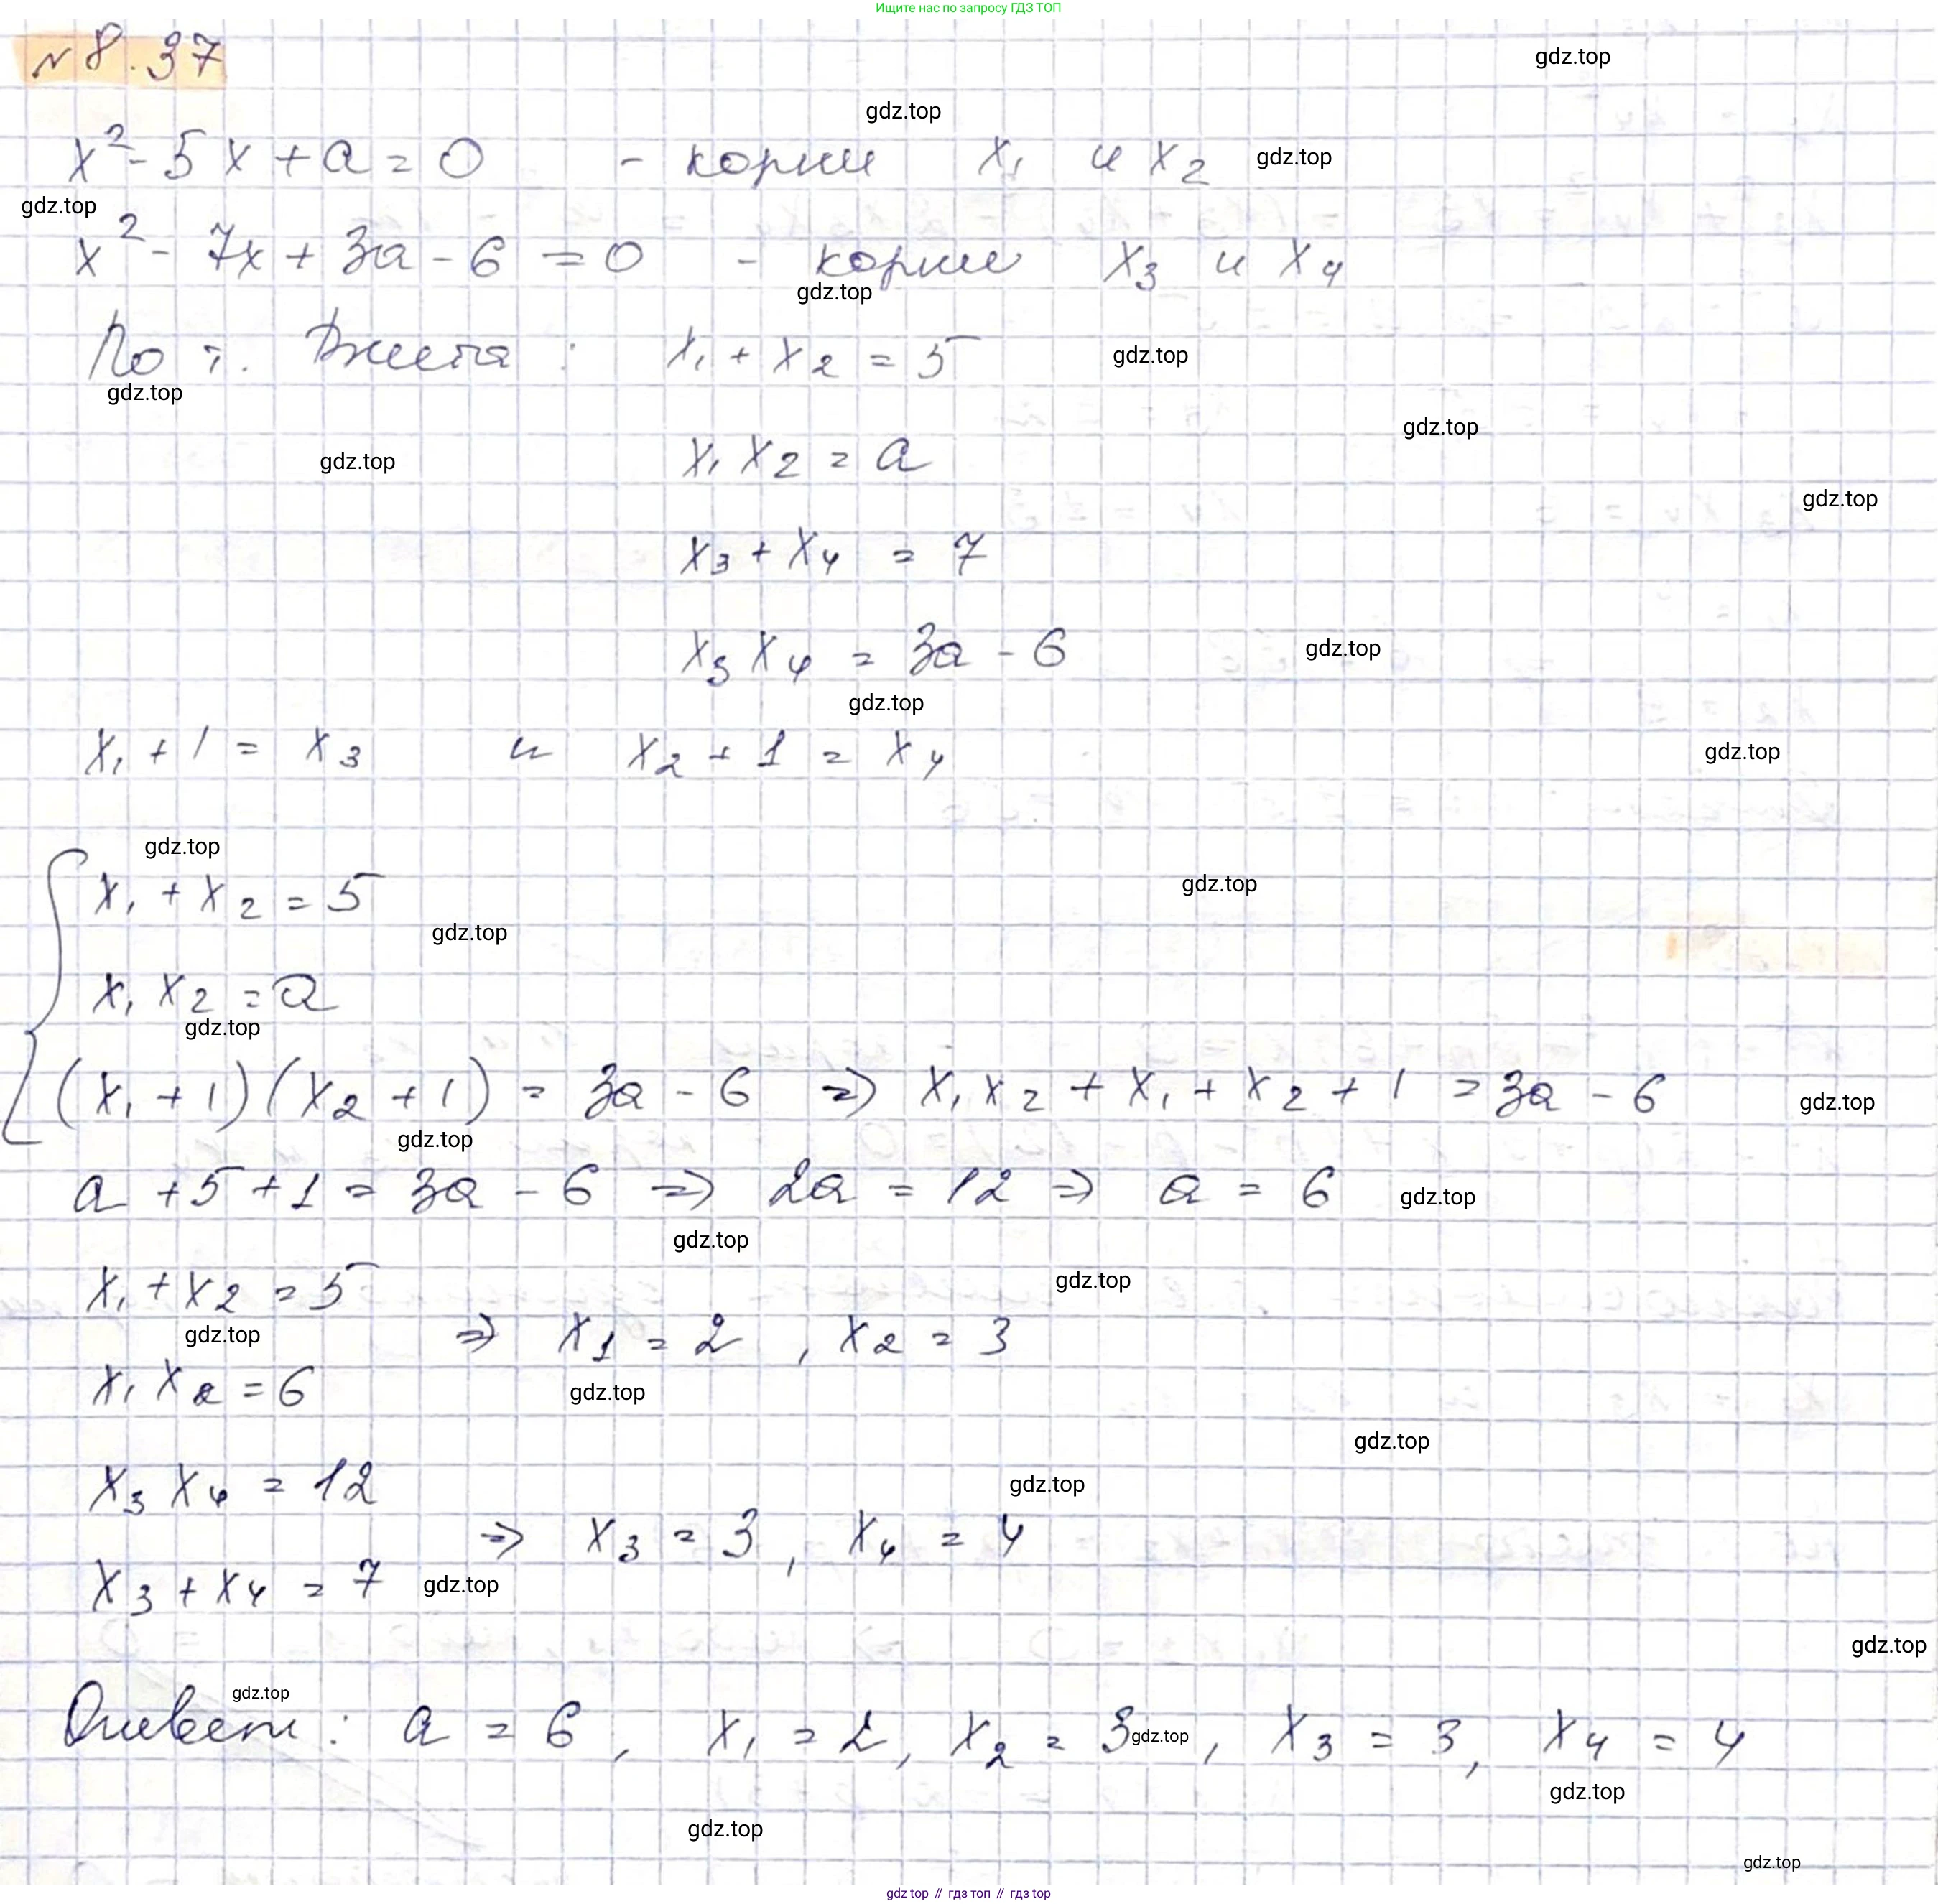 Ищите нас по запросу ГДЗ ТОП
№ 8.37
gdz.top
gdz.top
x² - 5x + a = 0 - корни x₁ и x₂ gdz.top
gdz.top
x² - 7x + 3a - 6 = 0 - корни x₃ и x₄
gdz.top
По т. Виета: x₁ + x₂ = 5 gdz.top
gdz.top
gdz.top
gdz.top x₁ x₂ = a
gdz.top
x₃ + x₄ = 7
x₃ x₄ = 3a - 6 gdz.top
gdz.top
x₁ + 1 = x₃ и x₂ + 1 = x₄ gdz.top
gdz.top
x₁ + x₂ = 5 gdz.top
gdz.top
x₁ x₂ = a
gdz.top
(x₁ + 1)(x₂ + 1) = 3a - 6 => x₁ x₂ + x₁ + x₂ + 1 = 3a - 6 gdz.top
gdz.top
a + 5 + 1 = 3a - 6 => 2a = 12 => a = 6 gdz.top
gdz.top
x₁ + x₂ = 5 gdz.top
gdz.top => x₁ = 2, x₂ = 3
x₁ x₂ = 6 gdz.top
gdz.top
x₃ x₄ = 12 gdz.top
=> x₃ = 3, x₄ = 4
x₃ + x₄ = 7 gdz.top
gdz.top
gdz.top
Ответ: a = 6, x₁ = 2, x₂ = 3 gdz.top, x₃ = 3, x₄ = 4
gdz.top
gdz.top
gdz.top
gdz top // гдз топ // gdz top